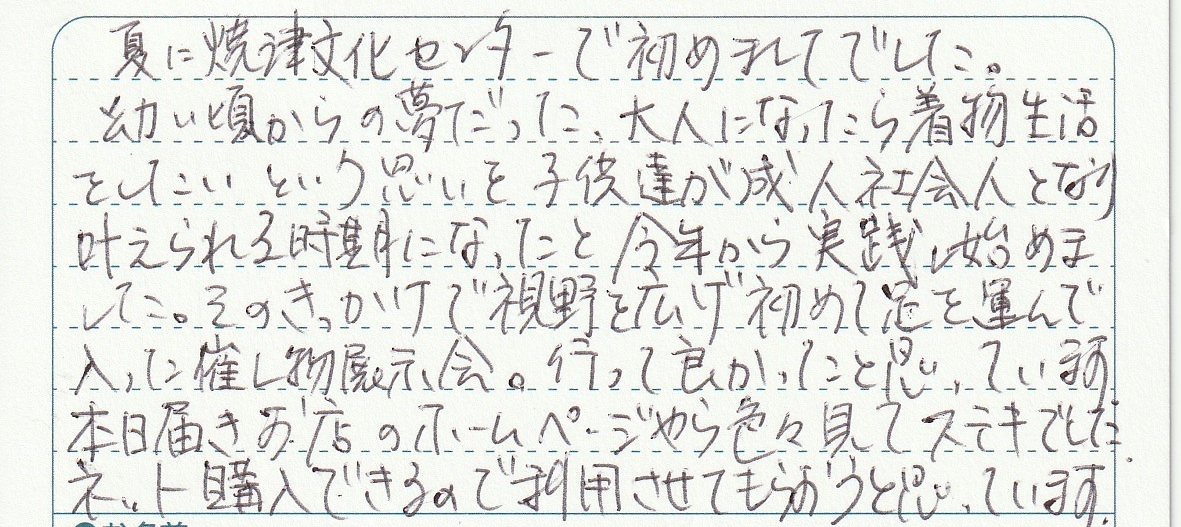 夏に焼津文化センターで初めましてでした。
幼い頃からの夢だった、大人になったら着物生活
をしたいという思いを子供達が成人社会人となり
叶えられる時期になったと今年から実践し始めま
した。そのきっかけで視野を広げ初めて足を運んで
入った催し物展示会。行って良かったと思っています
本日届きお店のホームページやら色々見てステキでした.
ネット購入できるので利用させてもらおうと思っています.